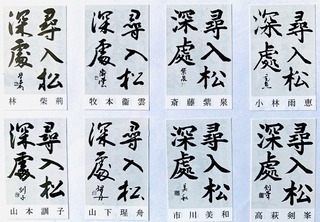 尋入松
深處
林 柴荊
尋入松
深處
牧本 衞雲
尋入松
深處
斎藤 紫泉
尋入松
深處
小林 雨恵
尋入松
深處
山本 訓子
尋入松
深處
山下 瑆舟
尋入松
深處
美和
市川 美和
尋入松
深處
高萩 剣峯